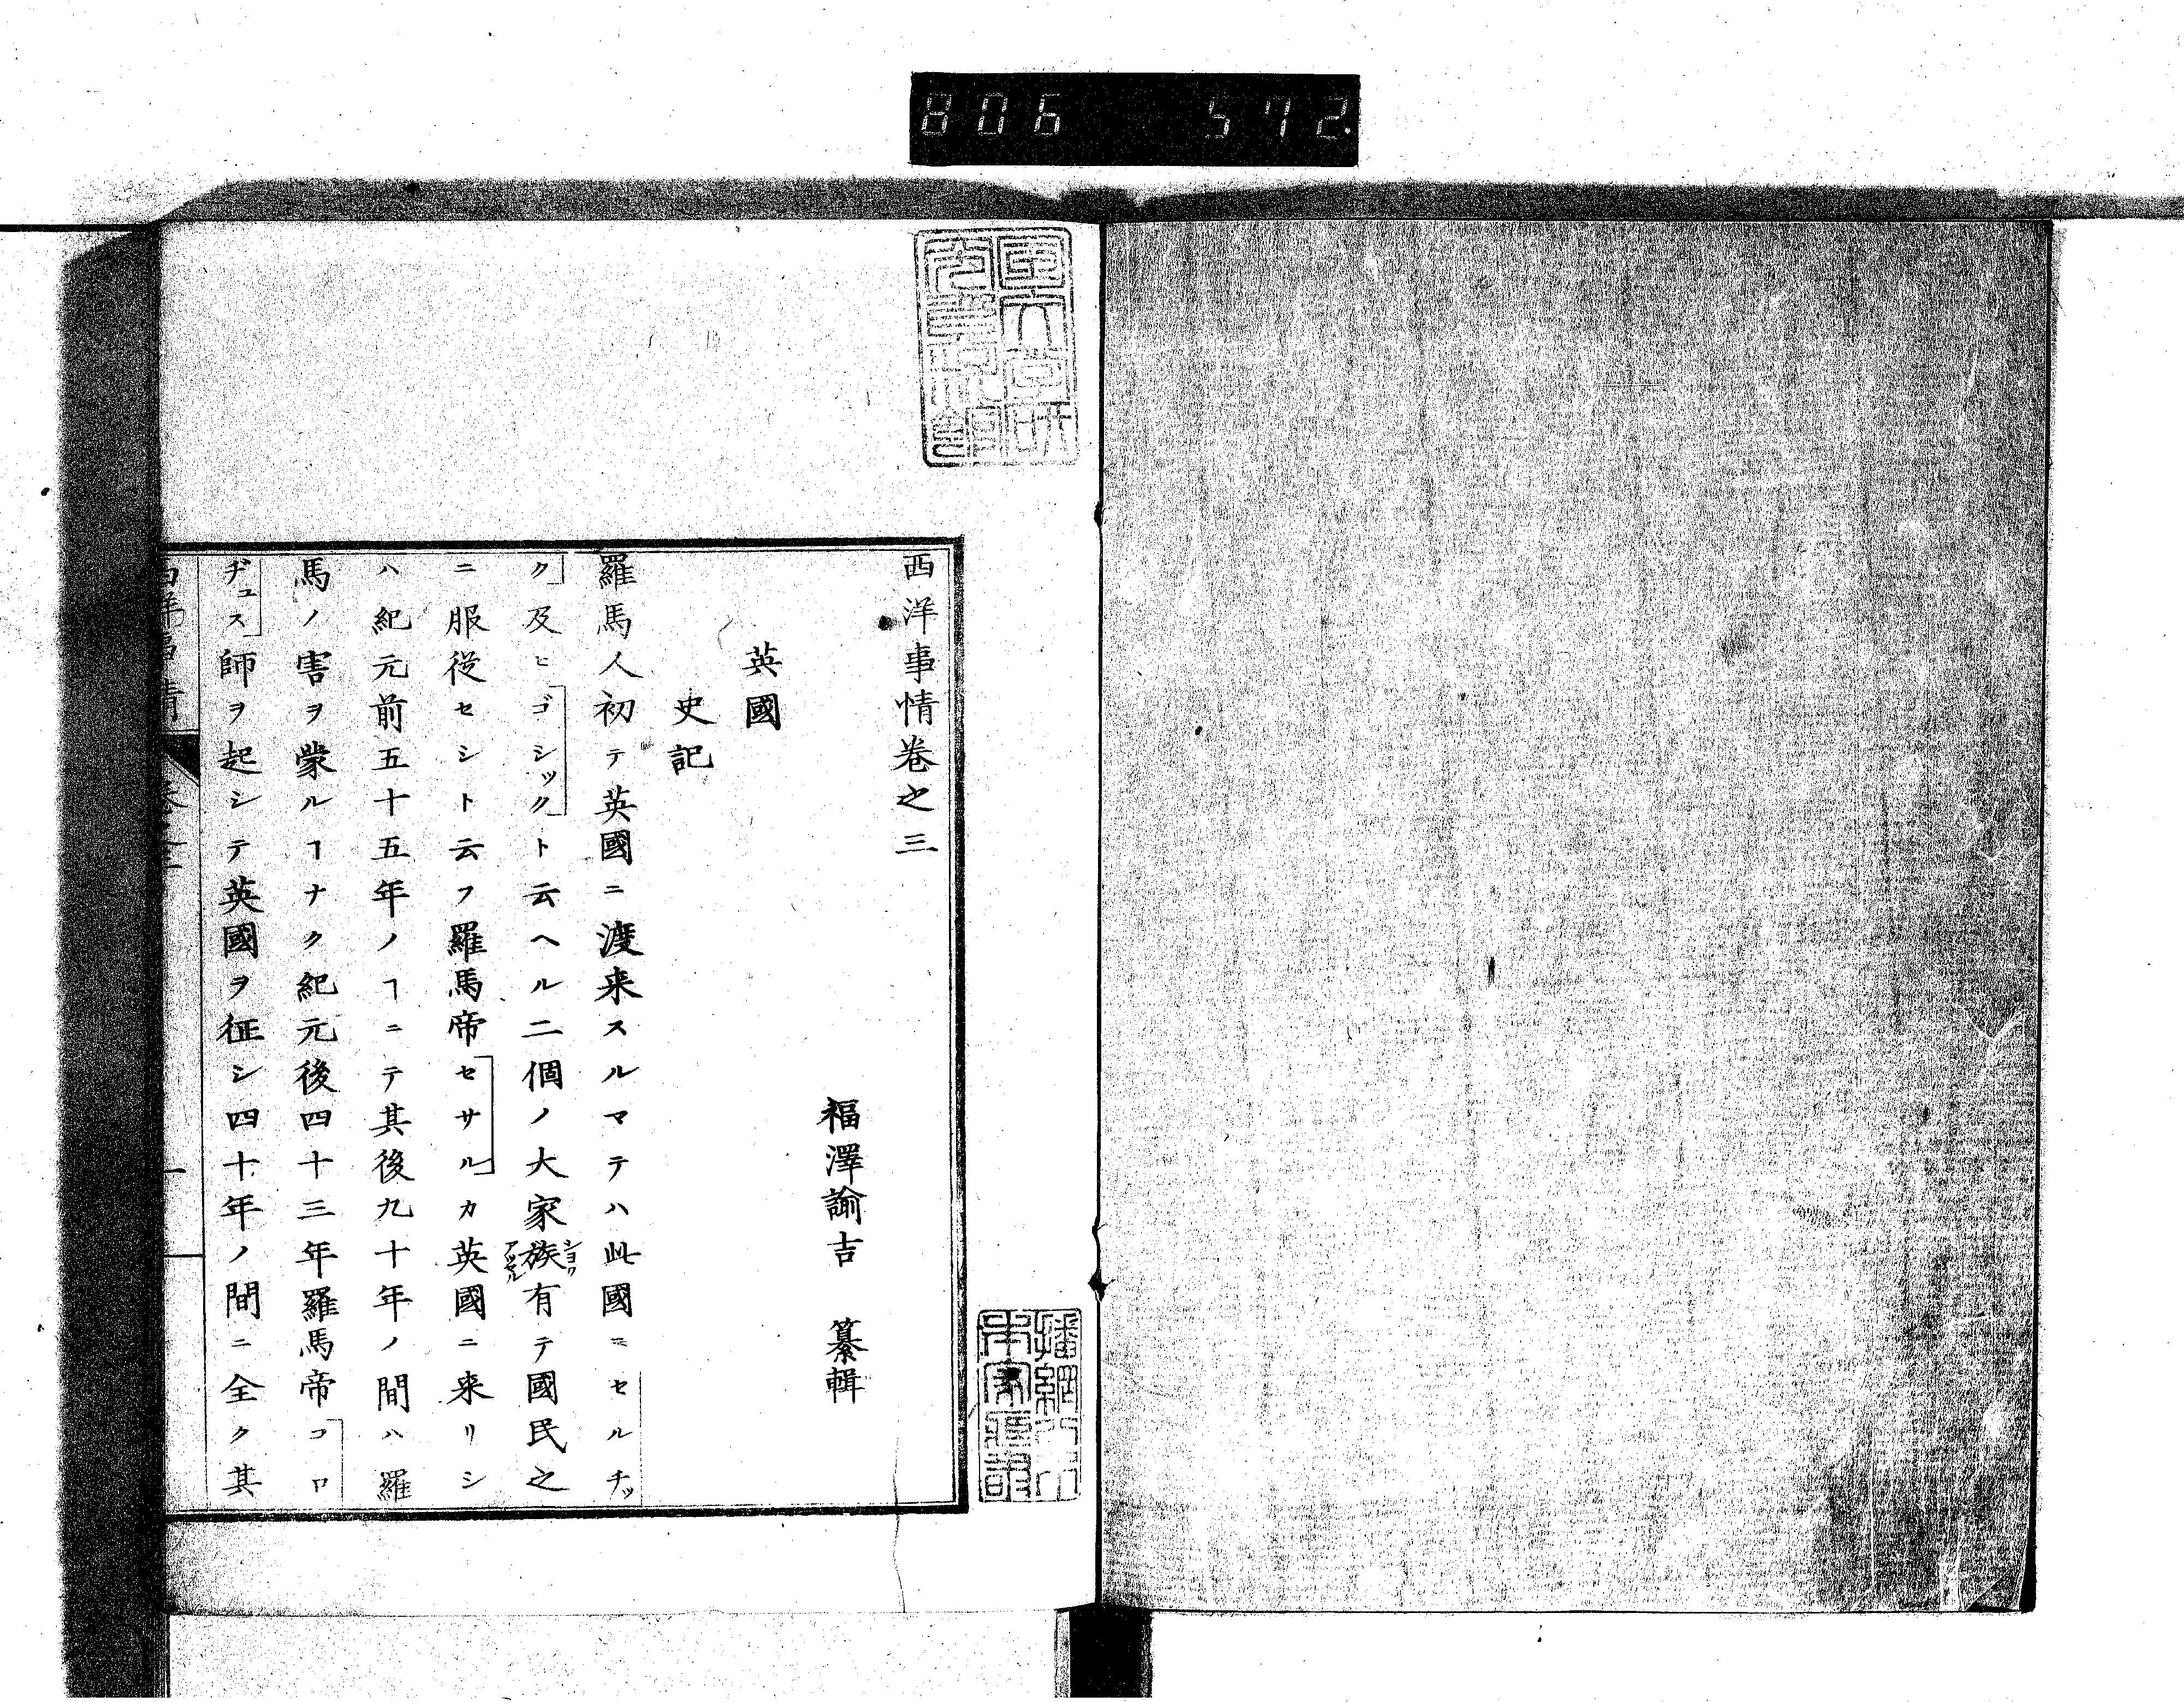 806 572.
西洋事情卷之三
福澤諭吉 纂輯
英國
史記
羅馬人初テ英國ニ渡来スルマテハ此國ニセルチッ
ク及ヒゴシックト云ヘル二個ノ大家族有テ國民之
ニ服從セシト云フ羅馬帝セサルカ英國ニ来リシ
ハ紀元前五十五年ノヿニテ其後九十年ノ間ハ羅
馬ノ害ヲ蒙ルヿナク紀元後四十三年羅馬帝コロ
ヂュス師ヲ起シテ英國ヲ征シ四十年ノ間ニ全ク其